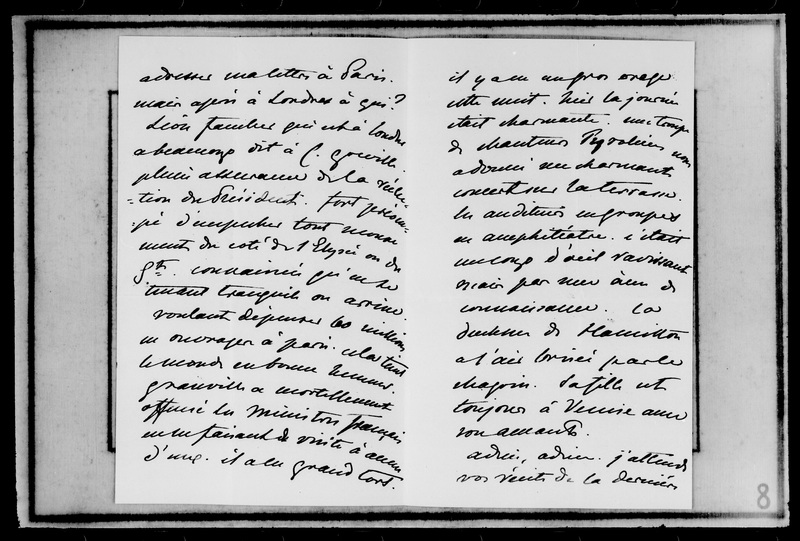 adresser ma lettre à Paris.
mais après à Londres à qui ?
Léon faucher qui est à londres
a beaucoup dit à C. greville
pleine assurance de la réélec-
-tion du Président. fort préoccu-
-pé d'empêcher tout mouve
ment du coté de l'Elysée ou du
g^al. connaissance qu'en se
tenant tranquile on arrive.
voulant dépenser 60 millions
en ouvrages à paris. cela tient
le monde en bonne humeur.
granville a mortellement
offensé les Ministres français
en ne faisant de visite à aucun
d'eux. il a eu grand tort.
il y a eu un gros orage
cette nuit. hier la journée
était charmante. une troupe
de chanteurs Pyrénéens nous
a donné un charmant
concert sur la terrasse.
les auditeurs en groupes
en amphitéatre. c'était
un coup d'oeil ravissant
mais pas une âme de
connaissance. La
duchesse de Hamilton
a l'air brisée par le
chagrin. Sa fille est
toujours à Venise avec
son amant.
adieu, adieu. j'attends
vos récits de la dernière
8